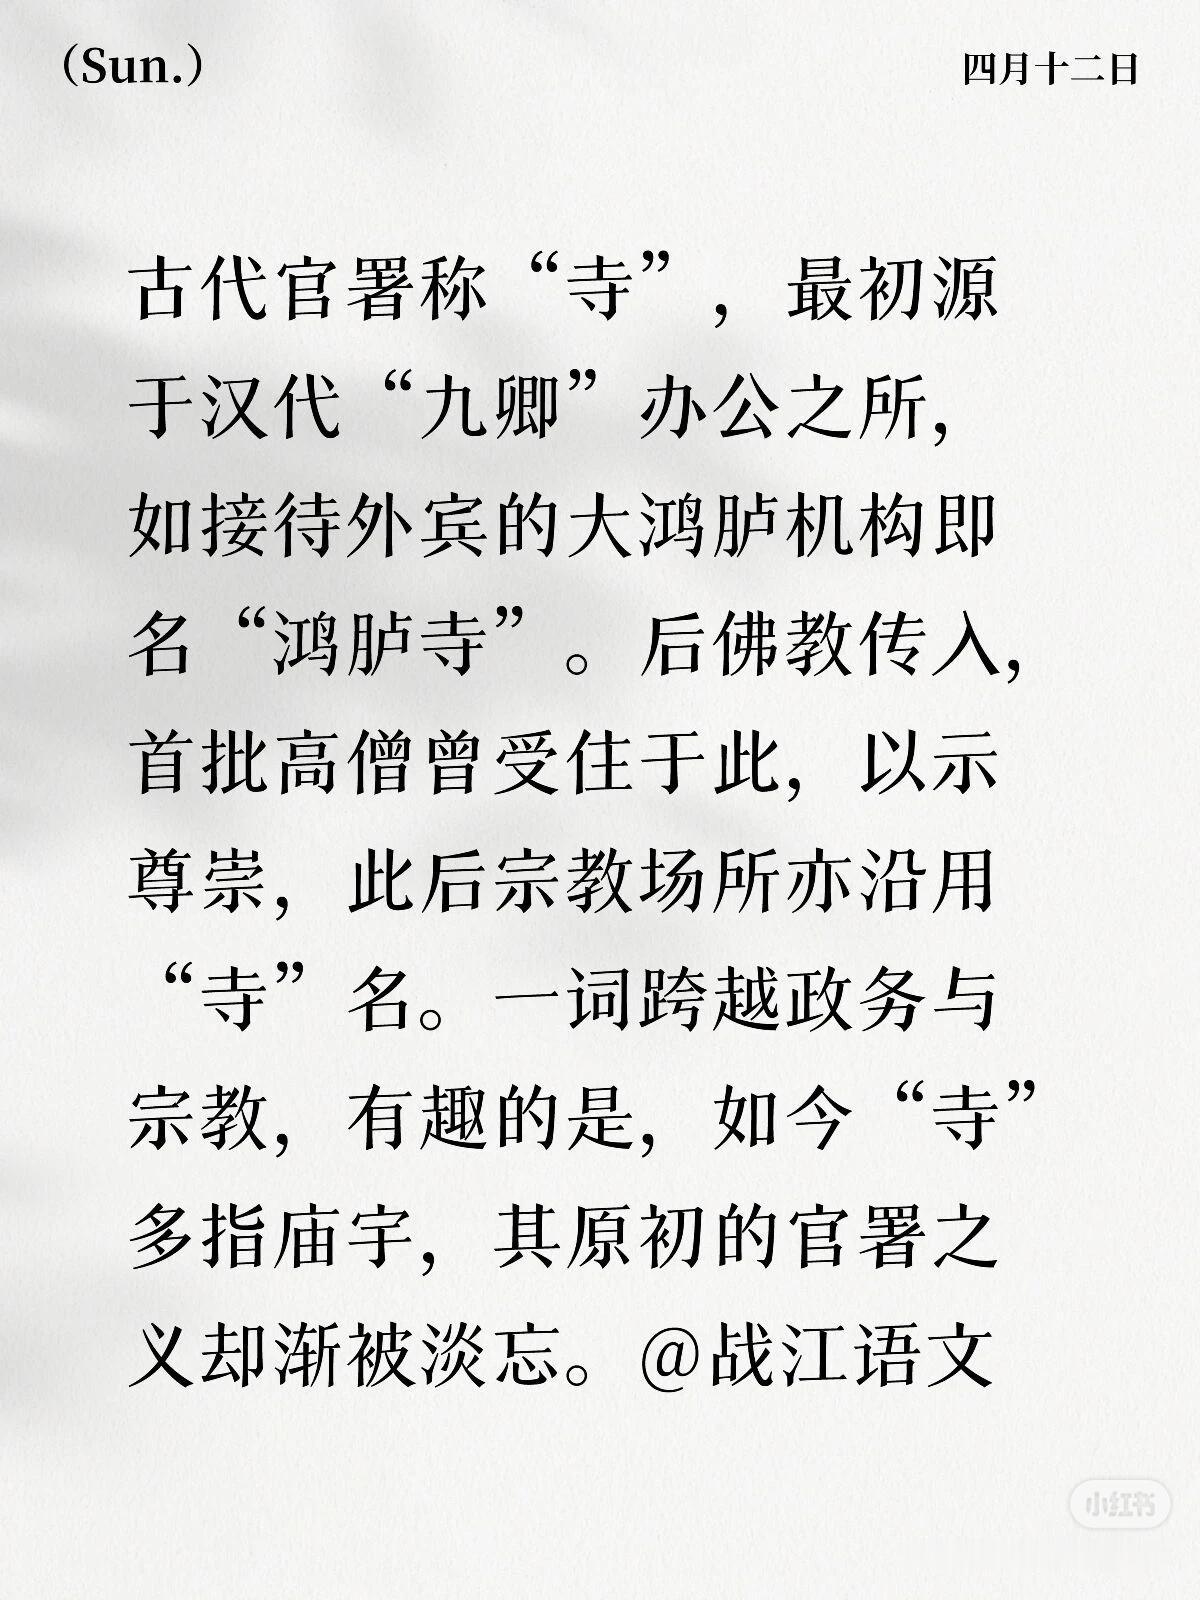 (Sun.)
四月十二日
古代官署称“寺”，最初源
于汉代“九卿”办公之所，
如接待外宾的大鸿胪机构即
名“鸿胪寺”。后佛教传入，
首批高僧曾受住于此，以示
尊崇，此后宗教场所亦沿用
“寺”名。一词跨越政务与
宗教，有趣的是，如今“寺”
多指庙宇，其原初的官署之
义却渐被淡忘。@战江语文
小红书